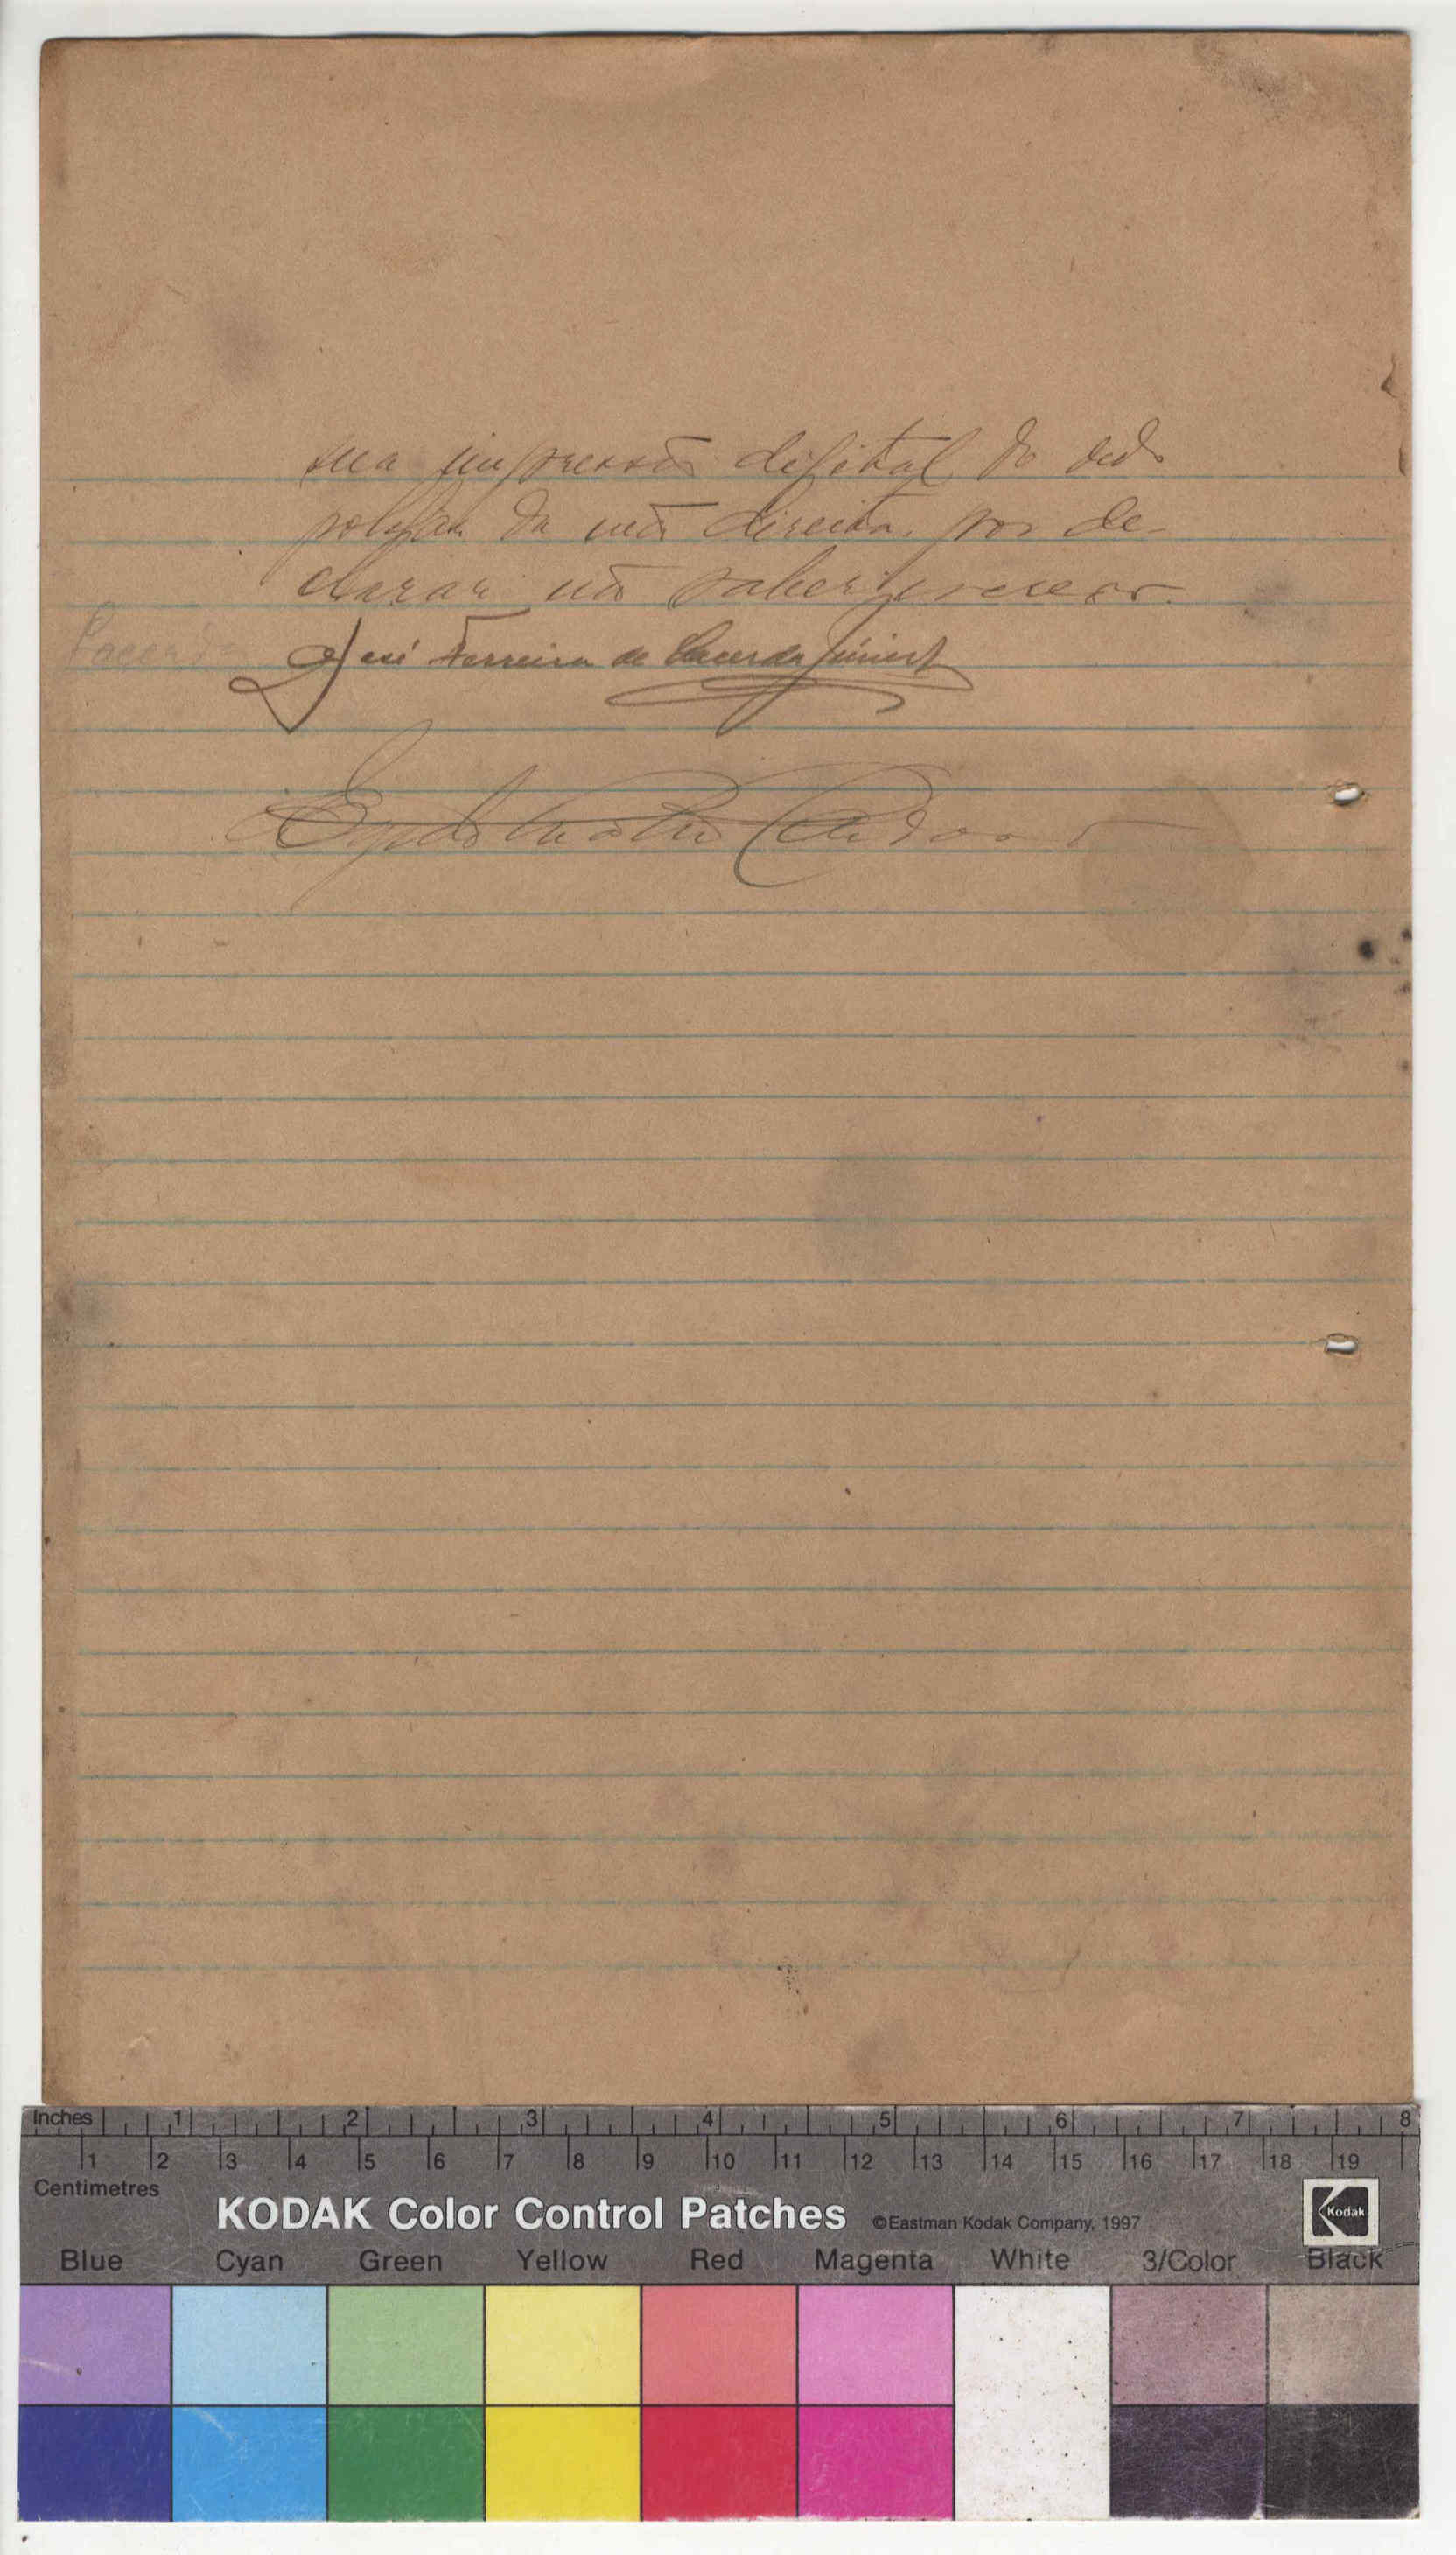 sua impressão digital do dedo
polegar da mão direita, por de-
clarar não saber escrever.
Lacerda José Ferreira de Lacerda Júnior
Cardoso
Inches 1 2 3 4 5 6 7 8
1 2 3 4 5 6 7 8 9 10 11 12 13 14 15 16 17 18 19
Centimetres
KODAK Color Control Patches ©Eastman Kodak Company, 1997 Kodak
Blue Cyan Green Yellow Red Magenta White 3/Color Black